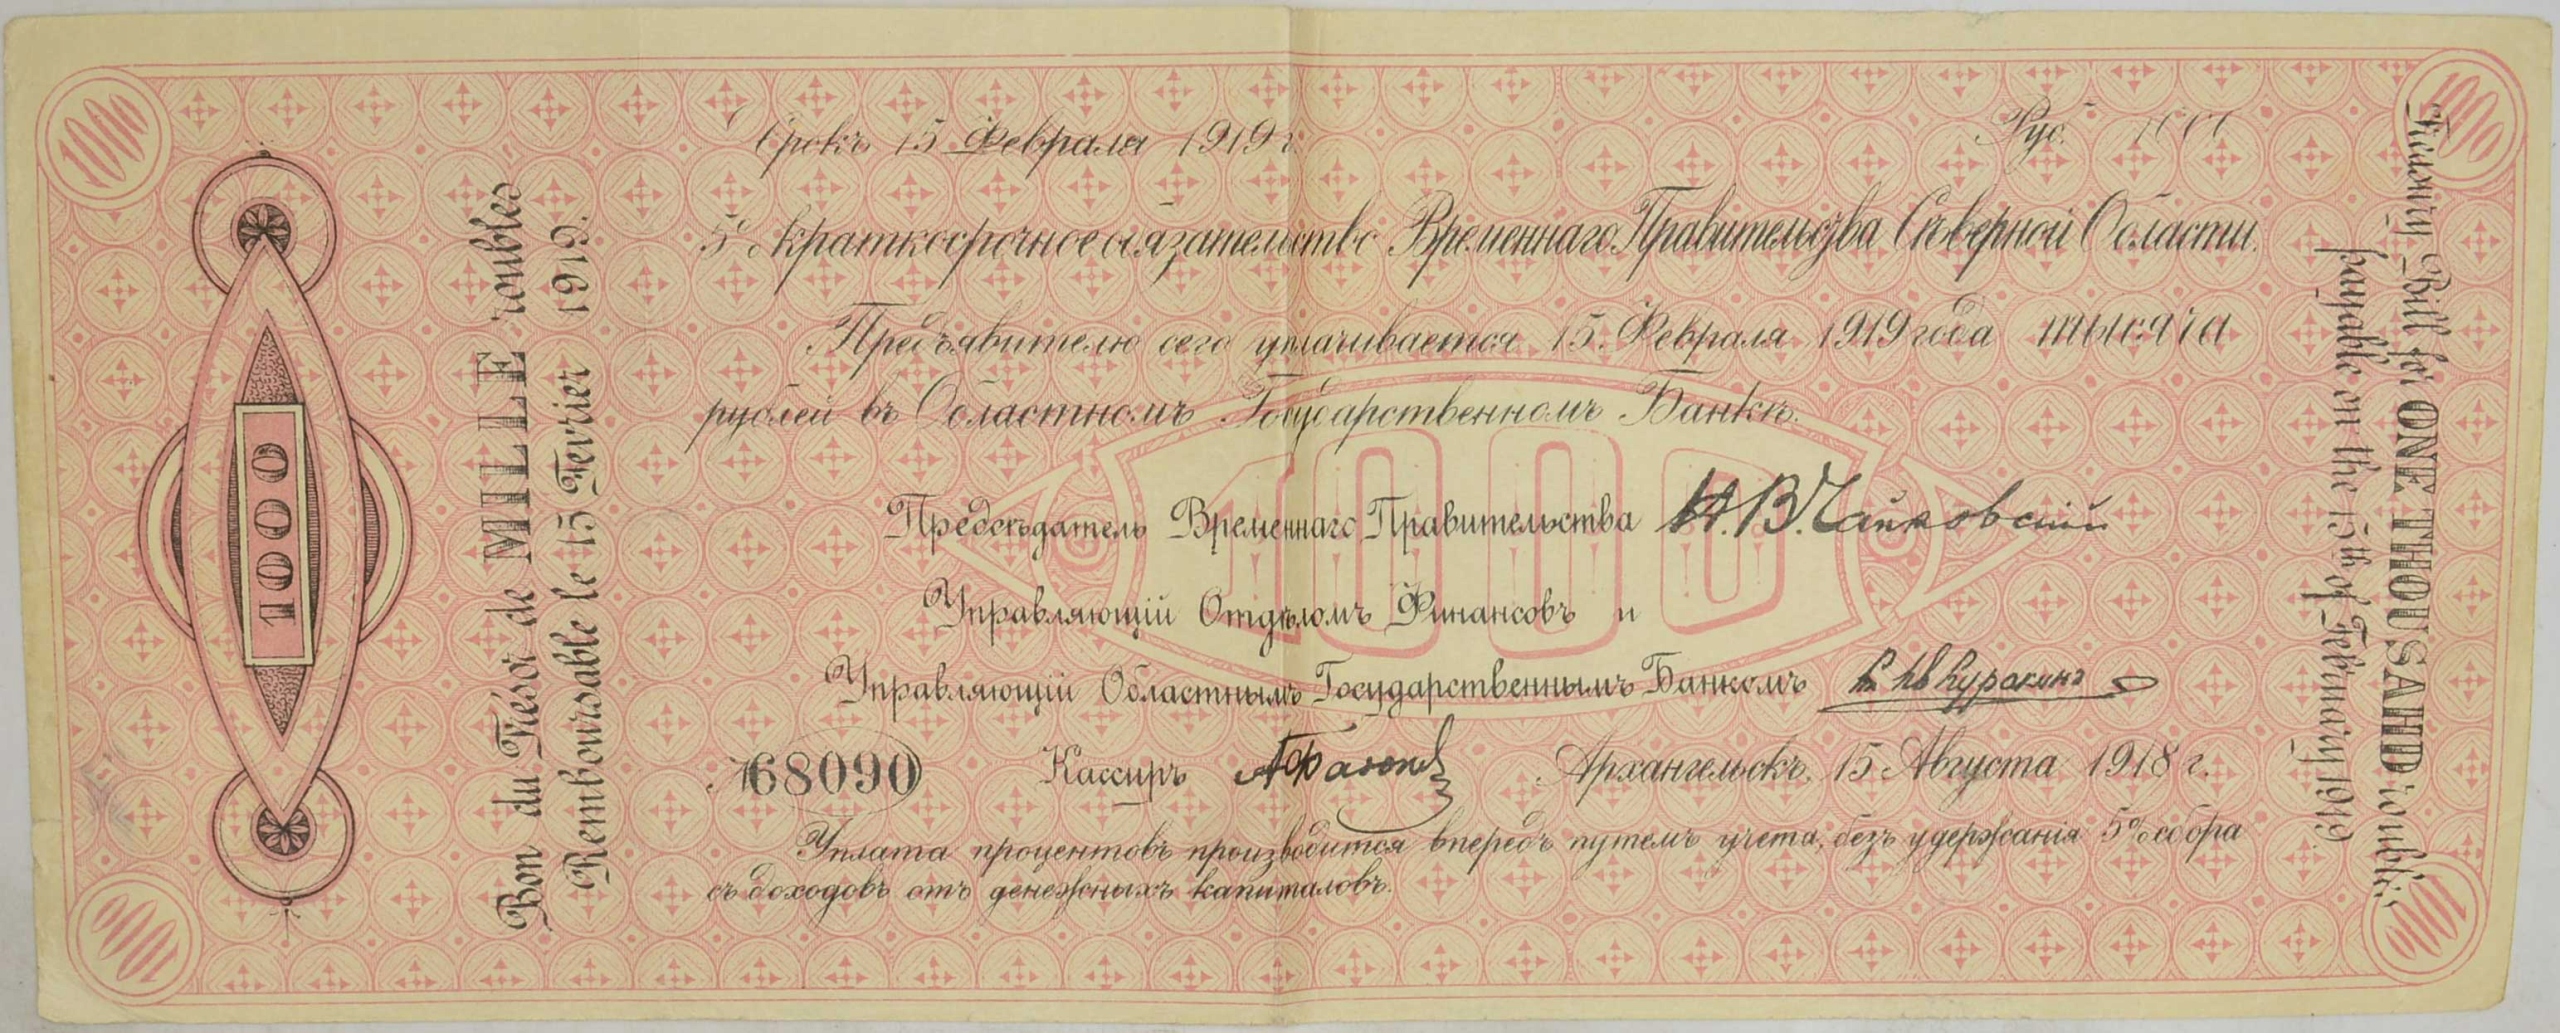 1000
1000
Срокъ 15 Февраля 1919 г.
Руб. 1000
5% краткосрочное обязательство Временнаго Правительства Съверной Области.
Предъявителю сего уплачивается 15 Февраля 1919 года тысяча
рублей въ Областномъ Государственномъ Банкъ.
Предсъдатель Временнаго Правительства Н. В. Чайковскій
Управляющій Отдъломъ Финансовъ и
Управляющій Областнымъ Государственнымъ Банкомъ
№ 68090
Кассиръ
Архангельскъ, 15 Августа 1918 г.
Уплата процентовъ производится впередъ путемъ учета, безъ удержанія 5% сбора
съ доходовъ отъ денежныхъ капиталовъ.
Bon du Trésor de MILLE roubles
Remboursable le 15 Fevrier 1919.
Treasury Bill for ONE THOUSAND roubles
payable on the 15th of February 1919.
1000
1000
1000
1000